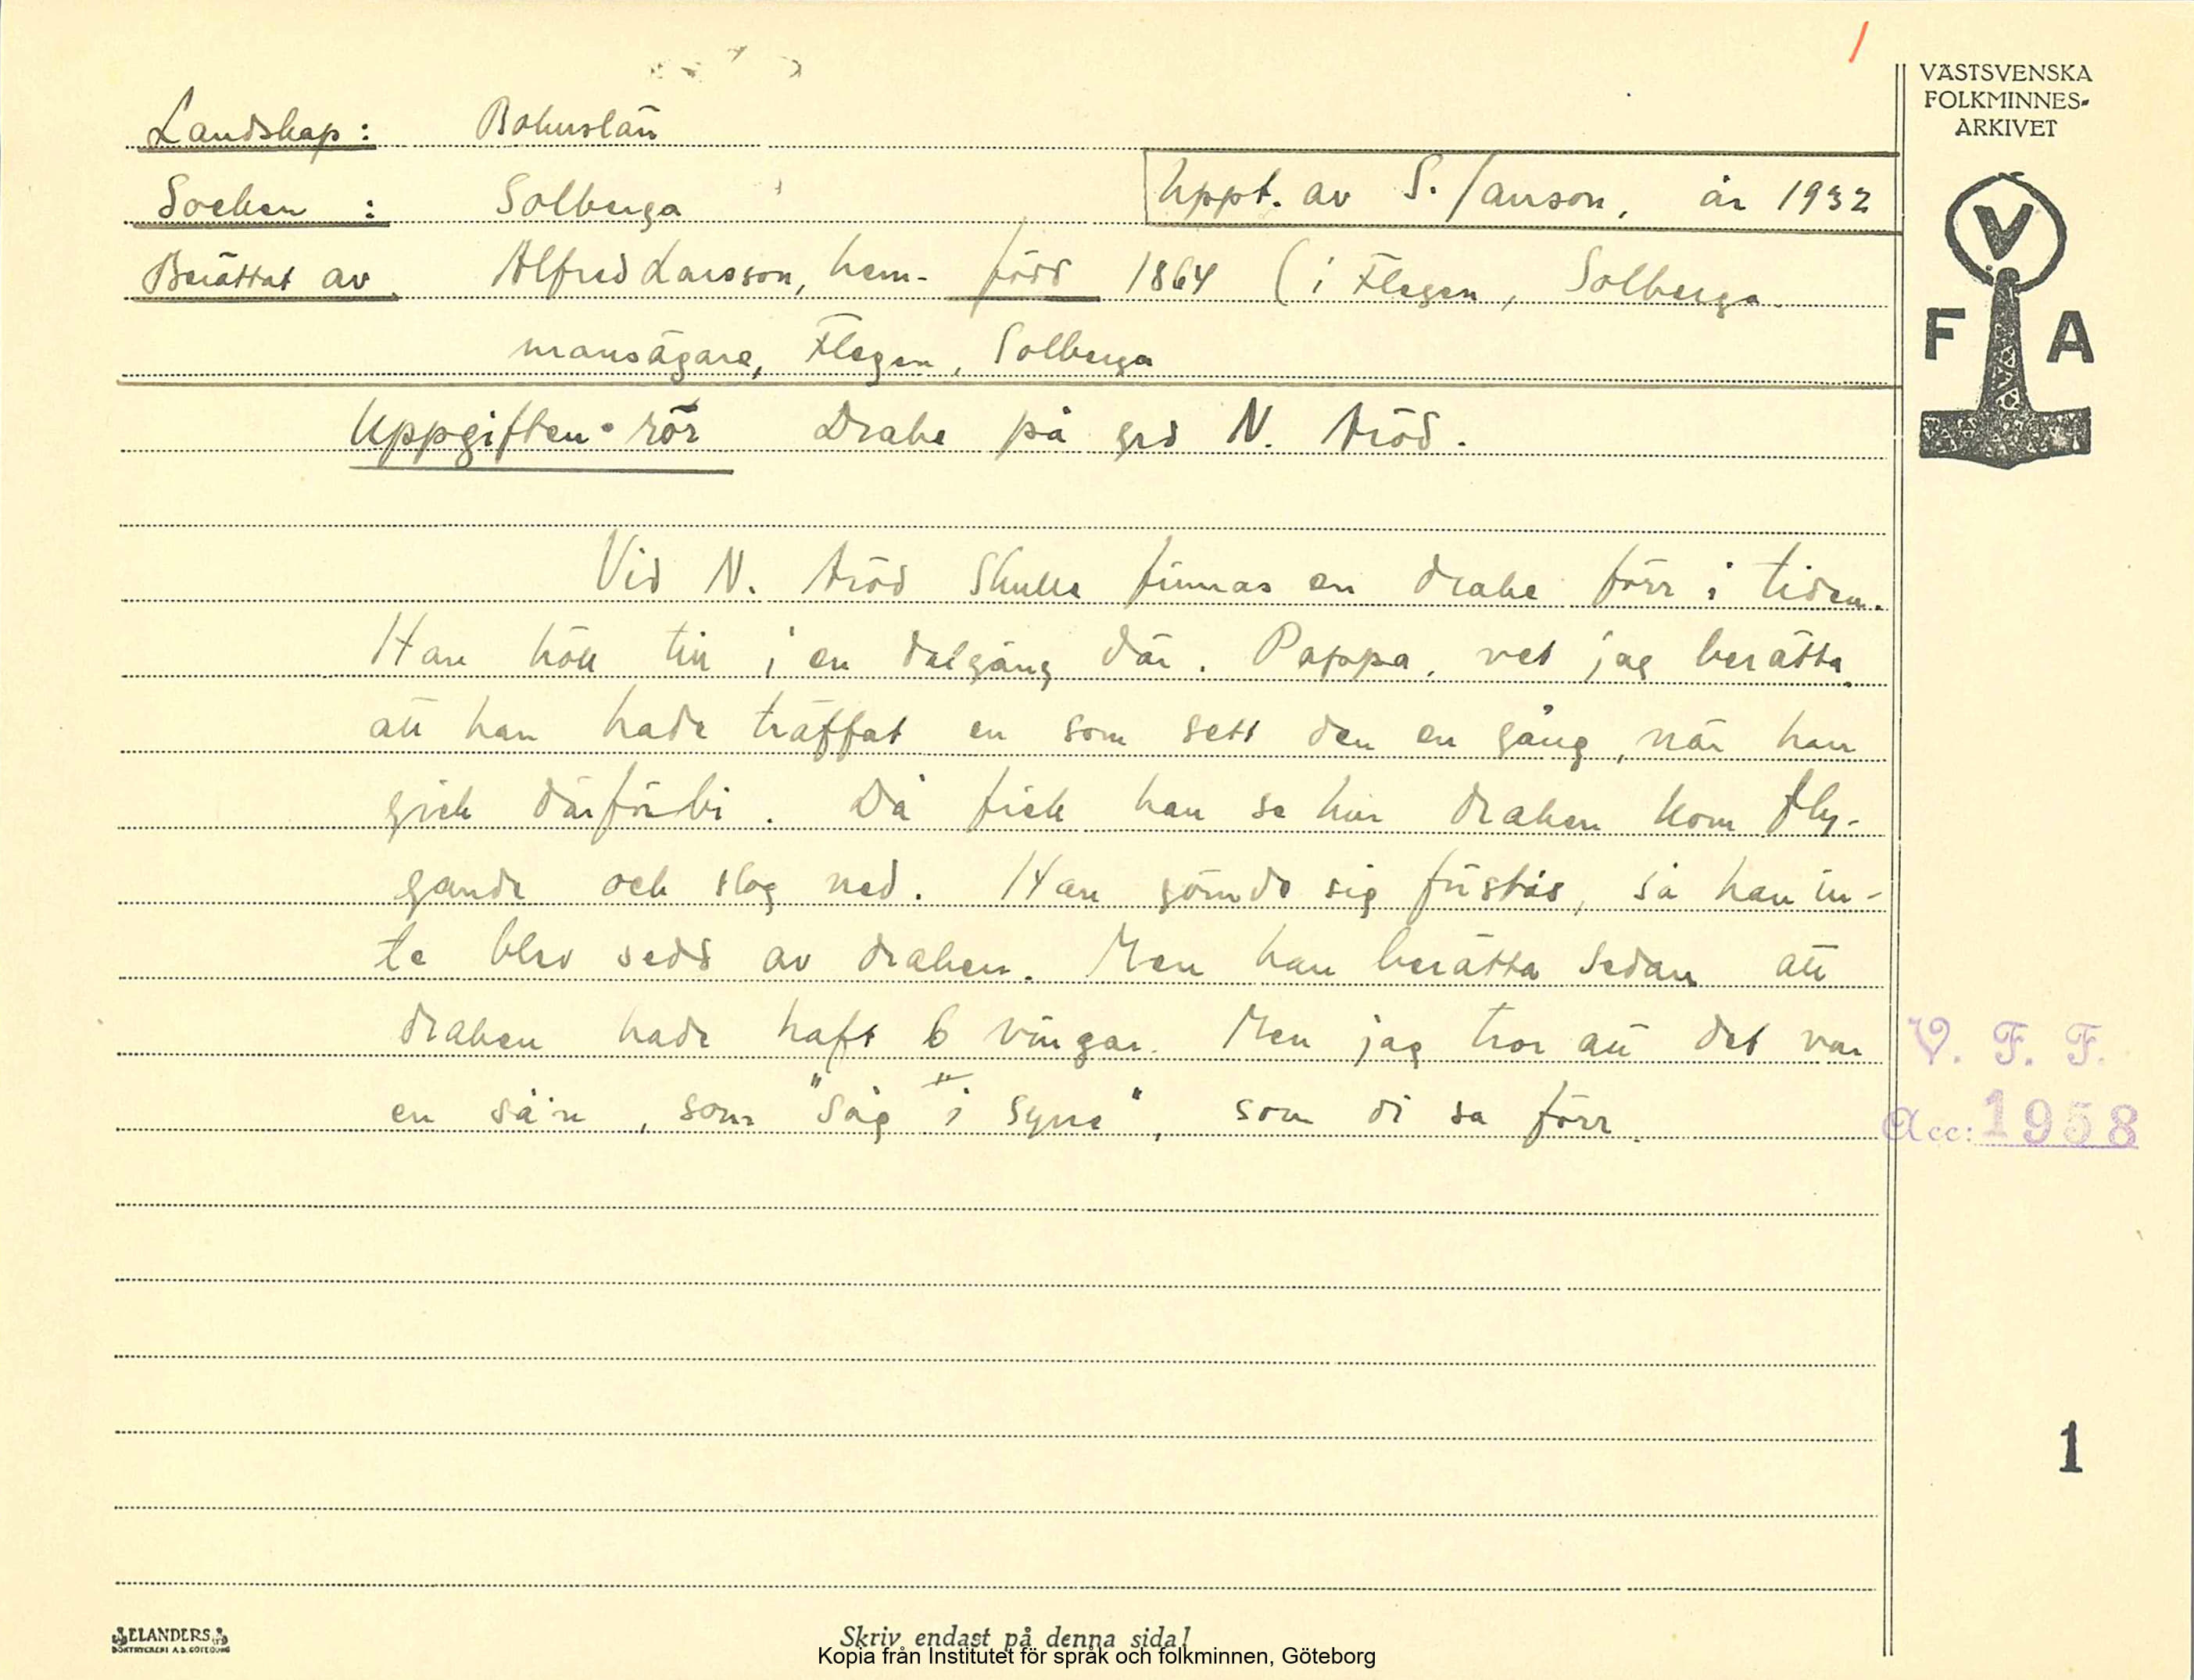 Landskap: Bohuslän
Socken: Solberga
Uppt. av S. Janson, år 1932
Berättat av Alfred Larsson, hem- född 1864 (i Flegen, Solberga.
mansägare, Flegen, Solberga
Uppgiften rör Drake på grd N. Aröd.
Vid N. Aröd skulle finnas en drake förr i tiden.
Han höll till i en dalgång där. Pappa, vet jag berätta,
att han hade träffat en som sett den en gång, när han
gick därförbi. Då fick han se hur draken kom fly-
gande och slog ned. Han gömde sig förstås, så han in-
te blev sedd av draken. Men han berätta sedan att
draken hade haft 6 vingar. Men jag tror att det var
en så'n, som "såg i syne", som di sa förr.
VÄSTSVENSKA
FOLKMINNES-
ARKIVET
V
F A
V. F. F.
Acc: 1958
1
ELANDERS
BOKTRYCKERI A.B. GÖTEBORG
Skriv endast på denna sida!
Kopia från Institutet för språk och folkminnen, Göteborg